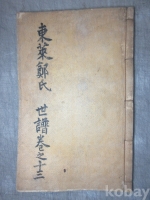 東萊鄭氏 世譜卷之十三
kobay